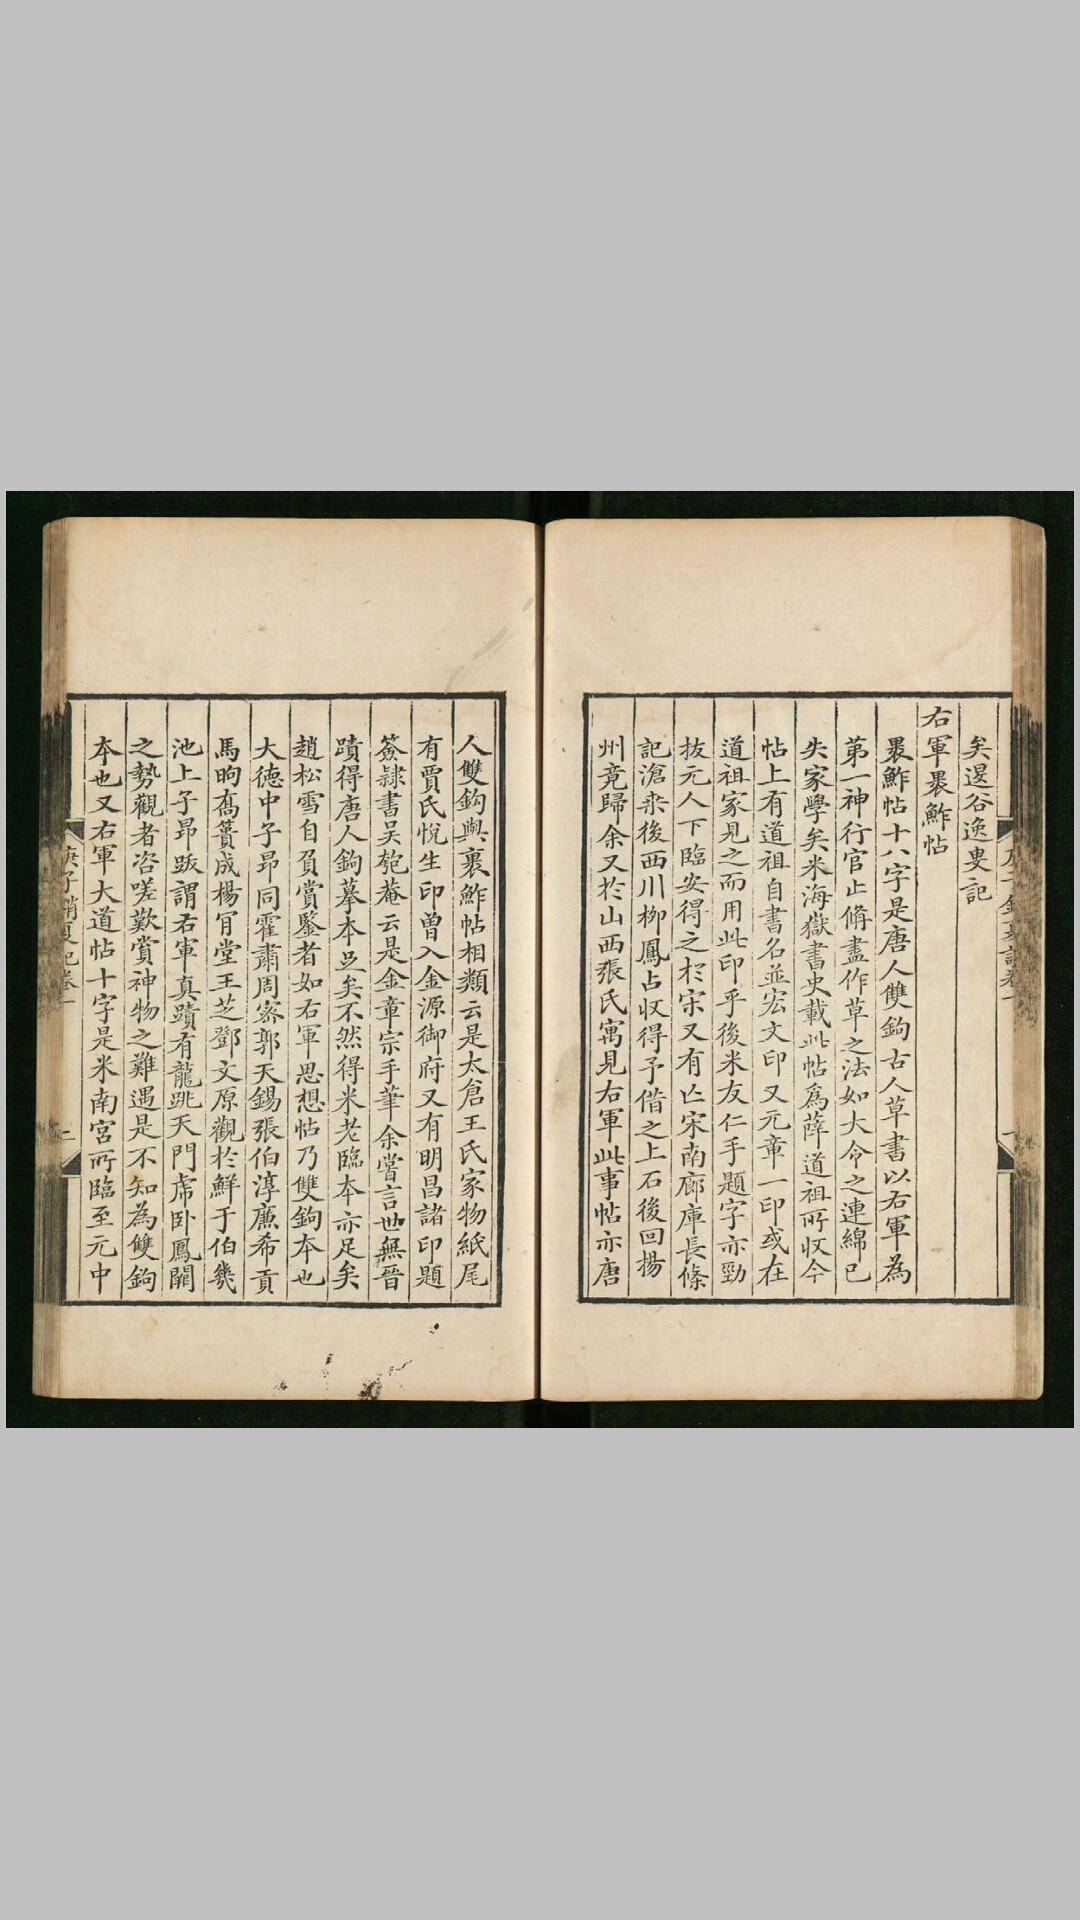 矣退谷逸叟記
右軍褁鮓帖
褁鮓帖十八字是唐人雙鉤古人草書以右軍為
第一神行官止脩盡作草之法如大令之連綿已
失家學矣米海嶽書史載此帖爲薛道祖所收今
帖上有道祖自書名並宏文印又元章一印或在
道祖家見之而用此印乎後米友仁手題字亦勁
拔元人下臨安得之於宋又有亡宋南廊庫長條
記滄桒後西川栁鳳占収得予借之上石後回揚
州竟歸余又於山西張氏寓見右軍此事帖亦唐
人雙鈎與裹鮓帖相類云是太倉王氏家物紙尾
有賈氏悅生印曾入金源御府又有明昌諸印題
簽隸書吴匏菴云是金章宗手筆余嘗言世無晉
蹟得唐人鉤摹本足矣不然得米老臨本亦足矣
趙松雪自負賞鑒者如右軍思想帖乃雙鉤本也
大德中子昂同霍肅周宻郭天錫張伯淳廉希貢
馬昫喬簣成楊肯堂王芝鄧文原觀於鮮于伯㡬
池上子昂跋謂右軍真蹟有龍跳天門虎卧鳳闕
之勢觀者咨嗟歎賞神物之難遇是不知為雙鉤
本也又右軍大道帖十字是米南宮所臨至元中
庚子銷夏記卷一
二